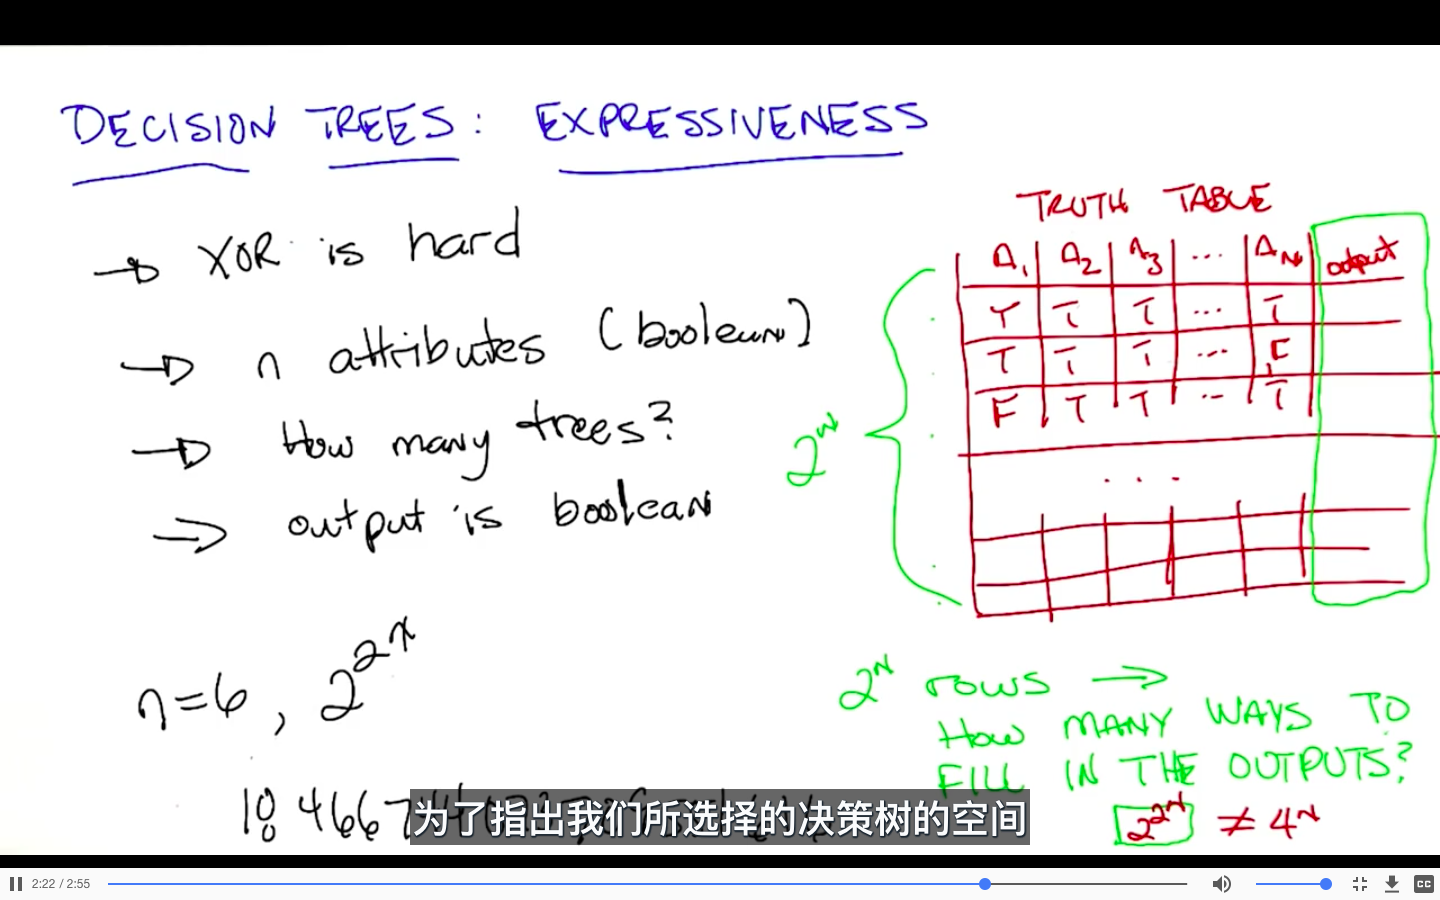 DECISION TREES: EXPRESSIVENESS
→ XOR is hard
→ n attributes (boolean)
→ How many trees?
→ output is boolean
n=6, 2^2^n
TRUTH TABLE
A1 A2 A3 ... AN output
T T T ... T
T T T ... F
F T T ... T
...
2^N
2^N rows →
HOW MANY WAYS TO
FILL IN THE OUTPUTS?
2^2^N ≠ 4^N
为了指出我们所选择的决策树的空间
2:22 / 2:55
CC